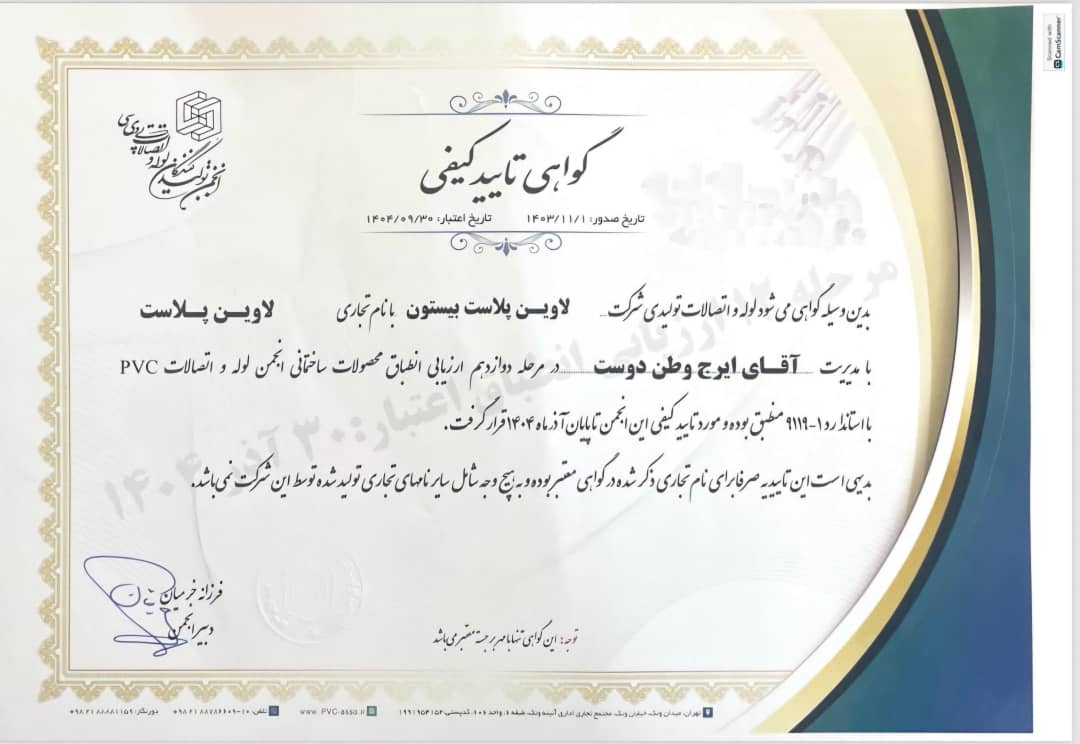 Scanned with
CamScanner
انجمن تولیدکنندگان لوله و اتصالات پی‌وی‌سی
گواهی تایید کیفی
تاریخ صدور: ۱۴۰۳/۱۱/۱ تاریخ اعتبار: ۱۴۰۴/۰۹/۳۰
بدین وسیله گواهی می شود لوله و اتصالات تولیدی شرکت لاوین پلاست بیستون با نام تجاری لاوین پلاست
با مدیریت آقای ایرج وطن دوست در مرحله دوازدهم ارزیابی انطباق محصولات ساختمانی انجمن لوله و اتصالات PVC
با استاندارد ۱-۹۱۱۹ منطبق بوده و مورد تایید کیفی این انجمن تا پایان آذر ماه ۱۴۰۴ قرار گرفت.
بدیهی است این تاییدیه صرفا برای نام تجاری ذکر شده در گواهی معتبر بوده و به هیچ وجه شامل سایر نامهای تجاری تولید شده توسط این شرکت نمی باشد.
مرحله ۱۲ ارزیابی انطباق اعتبار: ۳۰ آذر ۱۴۰۴
فرزانه خرمیان
دبیر انجمن
توجه: این گواهی تنها با مهر برجسته معتبر می باشد
تهران، میدان ونک، خیابان ونک، مجتمع تجاری اداری آئینه ونک، طبقه ۶، واحد ۶۰۱، کدپستی: ۱۹۹۱۹۵۴۱۵۲ www.PVC-asso.ir تلفن: ۱۰-۸۸۷۸۶۶۰۹ ۰۹۸۲۱ دورنگار: ۸۸۸۸۱۱۵۹ ۰۹۸۲۱